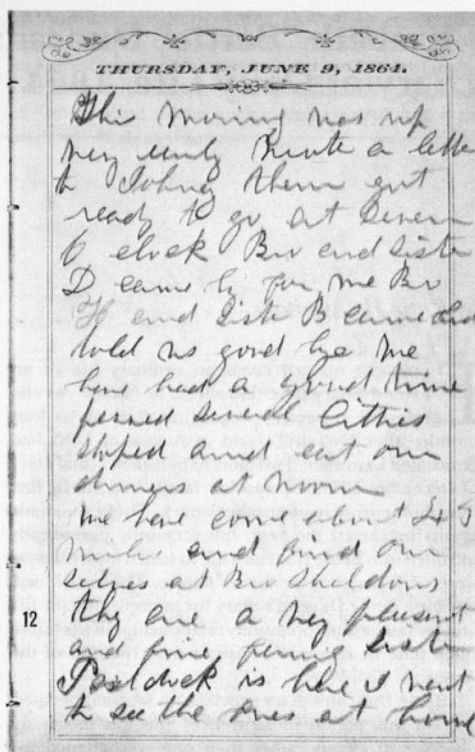 THURSDAY, JUNE 9, 1864.
This morning was up
very early wrote a letter
to Johney then got
ready to go at seven
O clock Bro and Siste
D came for me Bro
H and Siste B came and
told us good bye We
have had a good time
passed several Citties
stoped and eat our
dinners at Noon
We have come about
miles and find our
selves at Bro Sheldons
they are a very pleasent
and fine
12
is here I went
to see the ones at home